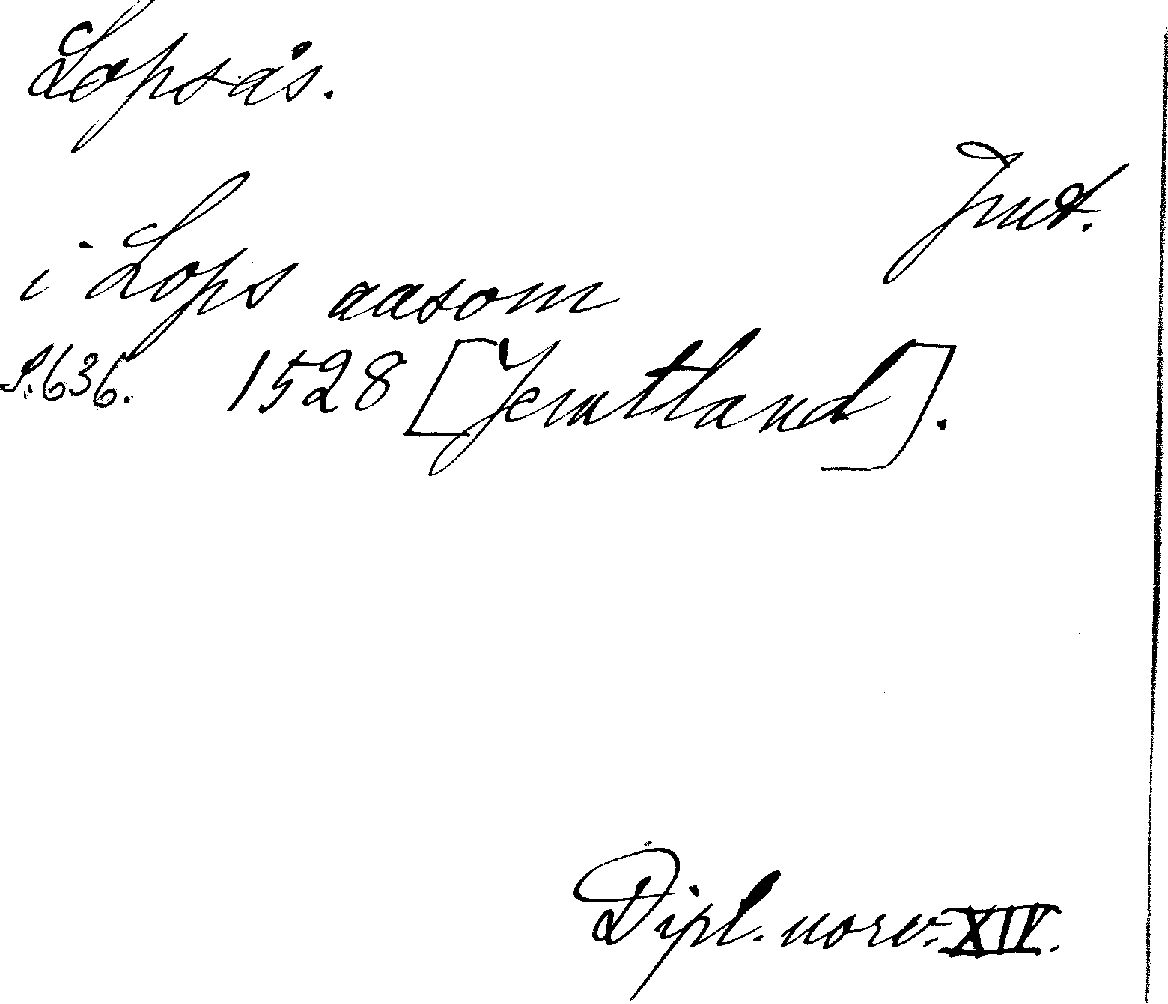 Lopsås.
Jmt.
i Lops aasom
S. 636. 1528 [Jemtland].
Dipl. norv. XIV.